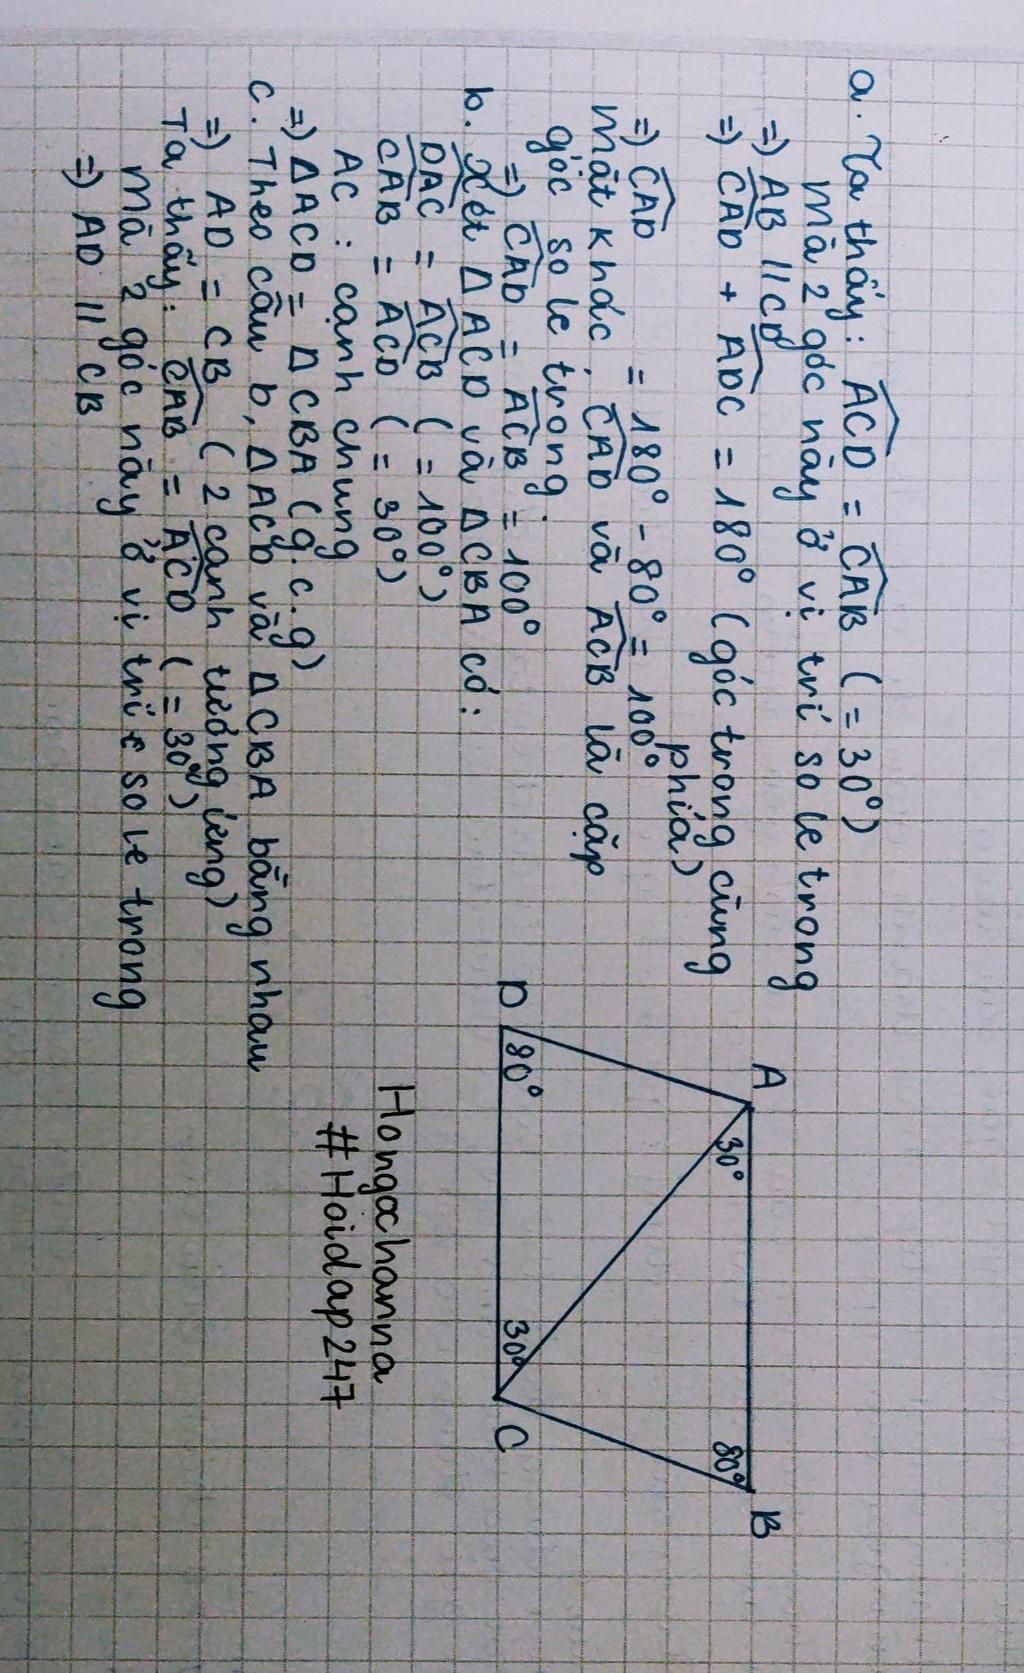 a. Ta thấy: ACD = CAB (= 30°)
Mà 2 góc này ở vị trí so le trong
=) AB // CD
=) CAD + ADC = 180° (góc trong cùng
phía)
=) CAD = 180° - 80° = 100°
Mặt khác, CAD và ACB là cặp
góc so le trong.
=) CAD = ACB = 100°
b. Xét Δ ACD và Δ CBA có:
DAC = ACB (= 100°)
CAB = ACD (= 30°)
AC : cạnh chung
=) Δ ACD = Δ CBA (g.c.g)
c. Theo câu b, Δ ACD và Δ CBA bằng nhau
=) AD = CB (2 cạnh tương ứng)
Ta thấy: CAB = ACD (= 30°)
Mà 2 góc này ở vị trí so le trong
=) AD // CB
A
30°
80°
B
D
80°
30°
C
Hongochanna
#Hoidap247